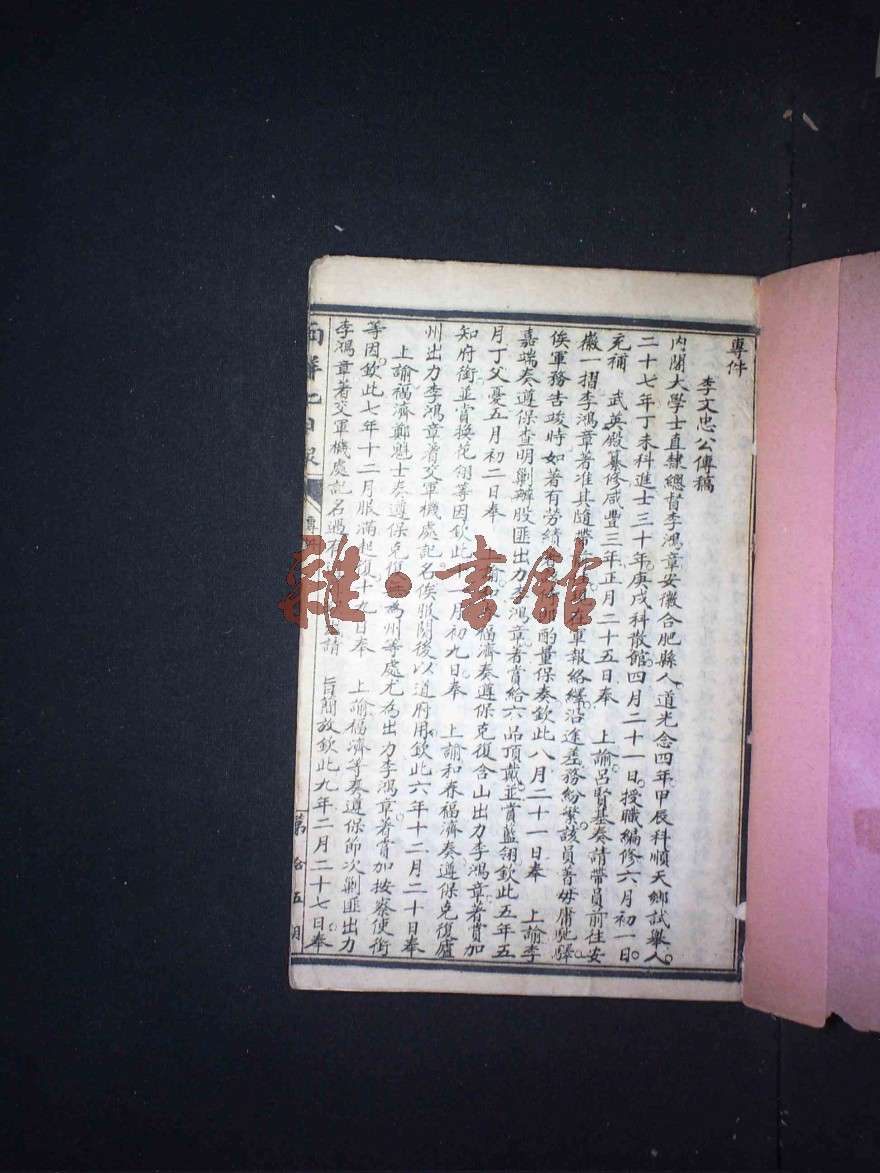 專件
李文忠公傳稿
內閣大學士直隸總督李鴻章安徽合肥縣人道光念四年甲辰科順天鄉試舉人
二十七年丁未科進士三十年庚戌科散館四月二十一日授職編修六月初一日
充補 武英殿纂修咸豐三年正月二十五日奉 上諭呂賢基奏請帶員前往安
徽一摺李鴻章著准其隨帶 現在軍報絡繹沿途差務紛繁該員著毋庸馳驛
俟軍務告竣時如著有勞績 即酌量保奏欽此八月二十一日奉 上諭李
嘉端奏遵保查明剿辦股匪出力李鴻章著賞給六品頂戴並賞藍翎欽此五年五
月丁父憂五月初二日奉 上諭 福濟奏遵保克復含山出力李鴻章著賞加
知府銜並賞換花翎等因欽此十一月初九日奉 上諭和春福濟奏遵保克復廬
州出力李鴻章著交軍機處記名俟服闋後以道府用欽此六年十二月二十日奉
上諭福濟鄭魁士奏遵保克復無為州等處尤為出力李鴻章著賞加按察使銜
等因欽此七年十二月服滿起復十九日奉 上諭福濟等奏遵保節次剿匪出力
李鴻章著交軍機處記名遇有 請 旨簡放欽此九年二月二十七日奉
第拾五期
雜·書館